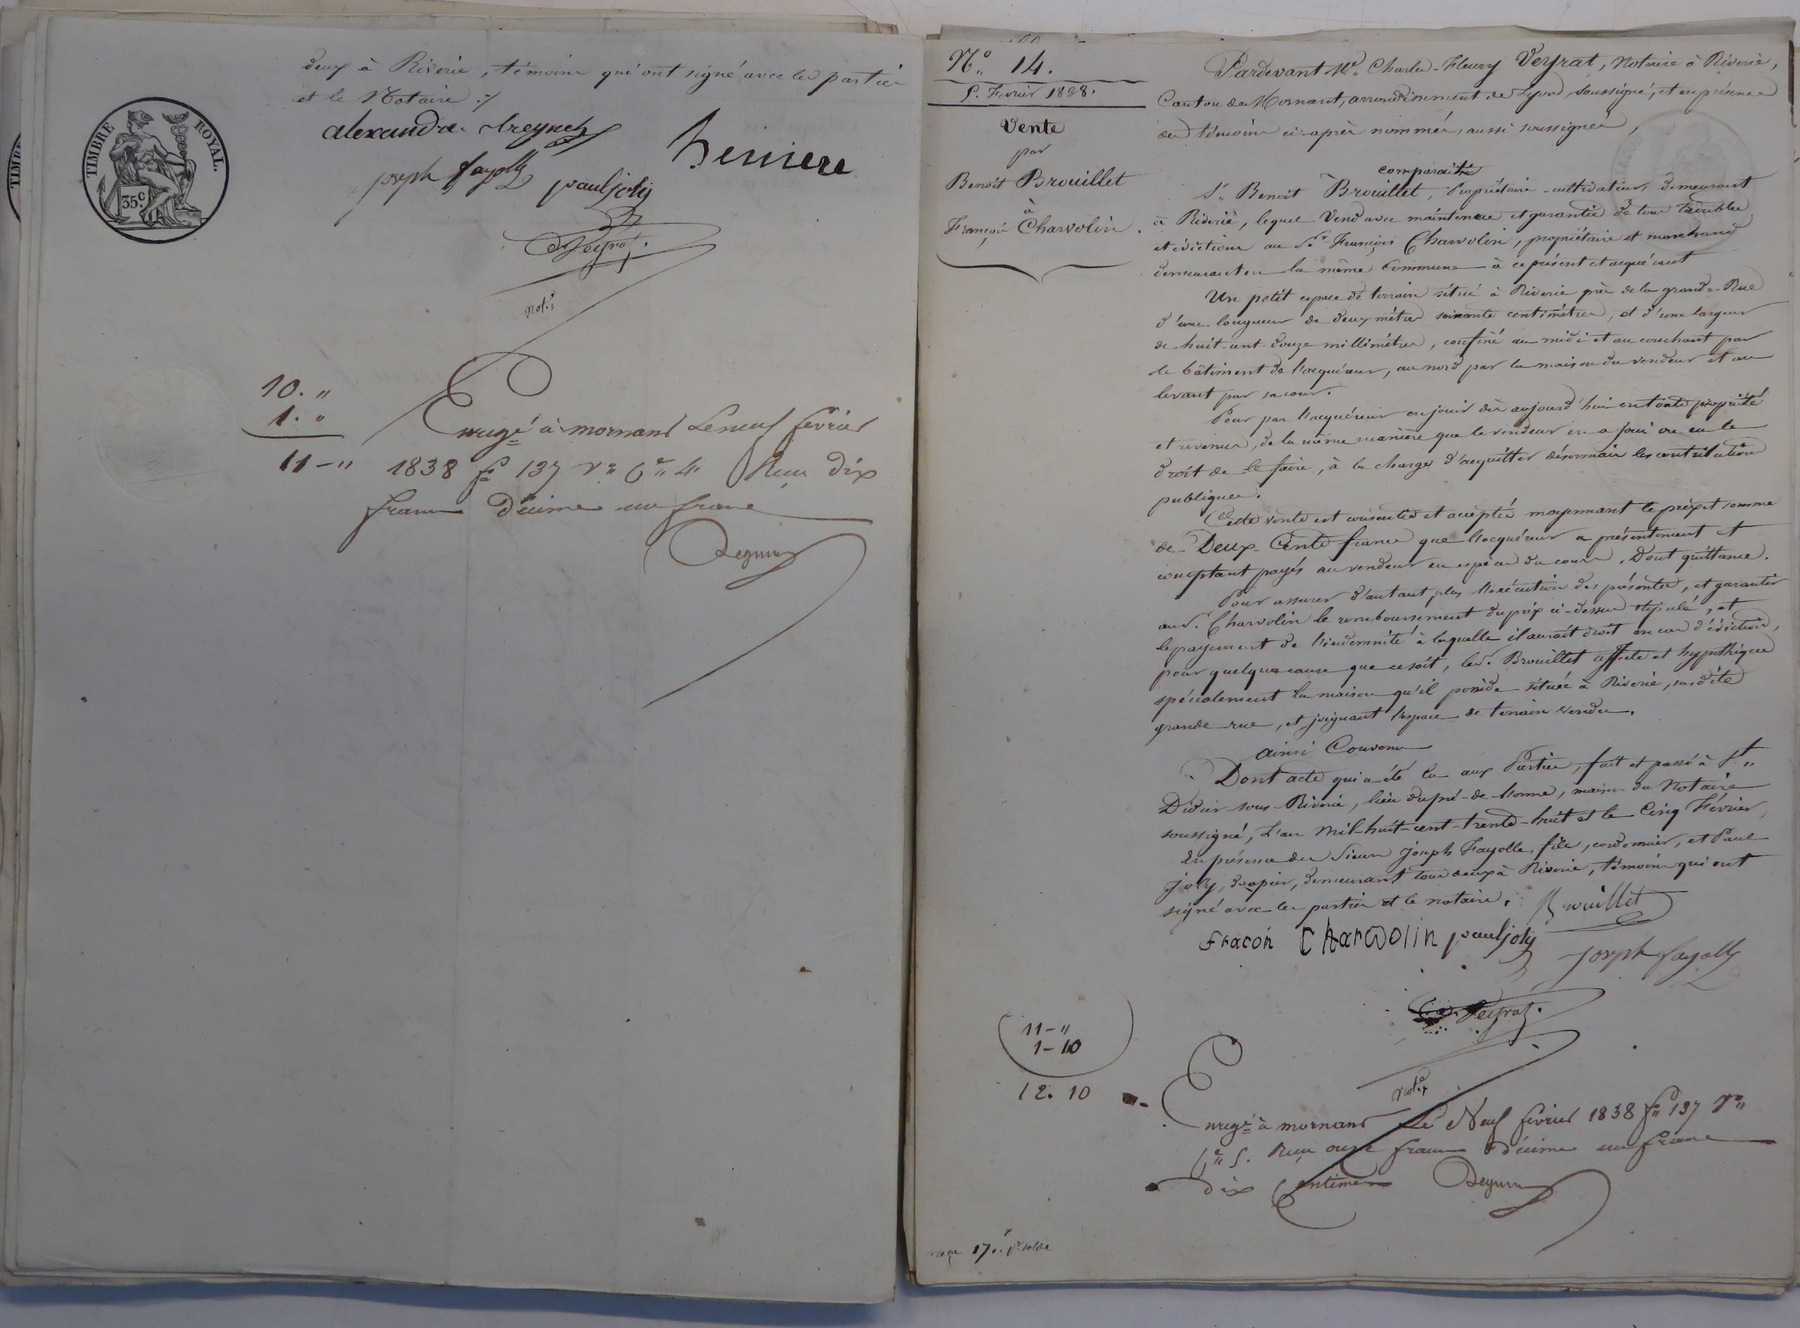 deux à Riverie, témoins qui ont signé avec les parties
et le Notaire ./
TIMBRE ROYAL.
35c
alexandre
Berriere
joseph fayolle
paul joly
Veyrat.
Not.re
10. "
1. "
11 - "
Enregé à mornant Le neuf février
1838 fo 137 Vo Ce 4 Reçu dix
francs Décime un franc
No. 14.
5. Fevrier 1838.
Vente
par
Benoît Brouillet
à
François Charvolin.
Pardevant Me. Charles-Fleury Veyrat, Notaire à Riverie,
Canton de Mornant, arrondissement de Lyon soussigné, et en présence
des témoins ci-après nommés, aussi soussignés,
comparaît
Sr. Benoît Brouillet, Propriétaire-cultivateur, demeurant
à Riverie, lequel Vend avec maintenue et garantie de tous troubles
et évictions au Sr. François Charvolin, propriétaire et marchand
demeurant en la même Commune à ce présent et acquérant
Un petit espace de terrain situé à Riverie près de la grande-Rue
d'une longueur de deux mètres soixante centimètres, et d'une largeur
de huit-cent-douze millimètres, confiné au midi et au couchant par
le bâtiment de l'acquéreur, au nord par la maison du vendeur et au
levant par sa cour.
Pour par l'acquéreur en jouir dès aujourd'hui en toute propriété
et revenus, de la même manière que le vendeur en a joui ou eu le
droit de le faire, à la charge d'acquitter désormais les contributions
publiques.
Cette vente est consentie et acceptée moyennant le prix et somme
de Deux-Cents francs que l'acquéreur a présentement et
comptant payés au vendeur en espèces du cours. Dont quittance.
Pour assurer d'autant plus l'exécution des présentes, et garantir
au S. Charvolin le remboursement du prix ci-dessus stipulé, et
le payement de l'indemnité à laquelle il aurait droit en cas d'éviction,
pour quelque cause que ce soit, le S. Brouillet affecte et hypothèque
spécialement la maison qu'il possède située à Riverie, susdite
grande-rue, et joignant l'espace de terrain vendu.
ainsi Convenu
Dont acte qui a été lu aux Parties, fait et passé à St.
Didier-sous-Riverie, lieu du pré-de-l'orme, maison du Notaire
soussigné, L'an Mil-huit-cent-trente-huit et le Cinq Février
En présence des Sieurs Joseph Fayolle fils, cordonnier, et Paul
Joly, drapier, demeurant tous deux à Riverie, témoins qui ont
signé avec les parties et le notaire.
Brouillet
fracon CharvOlin
paul joly
joseph fayolle
Veyrat.
Not.re
11 - "
1 - 10
12. 10
Enregé à mornant Le Neuf février 1838 fo 137 Vo
Ce 5. Reçu onze francs décime un franc
dix Centimes